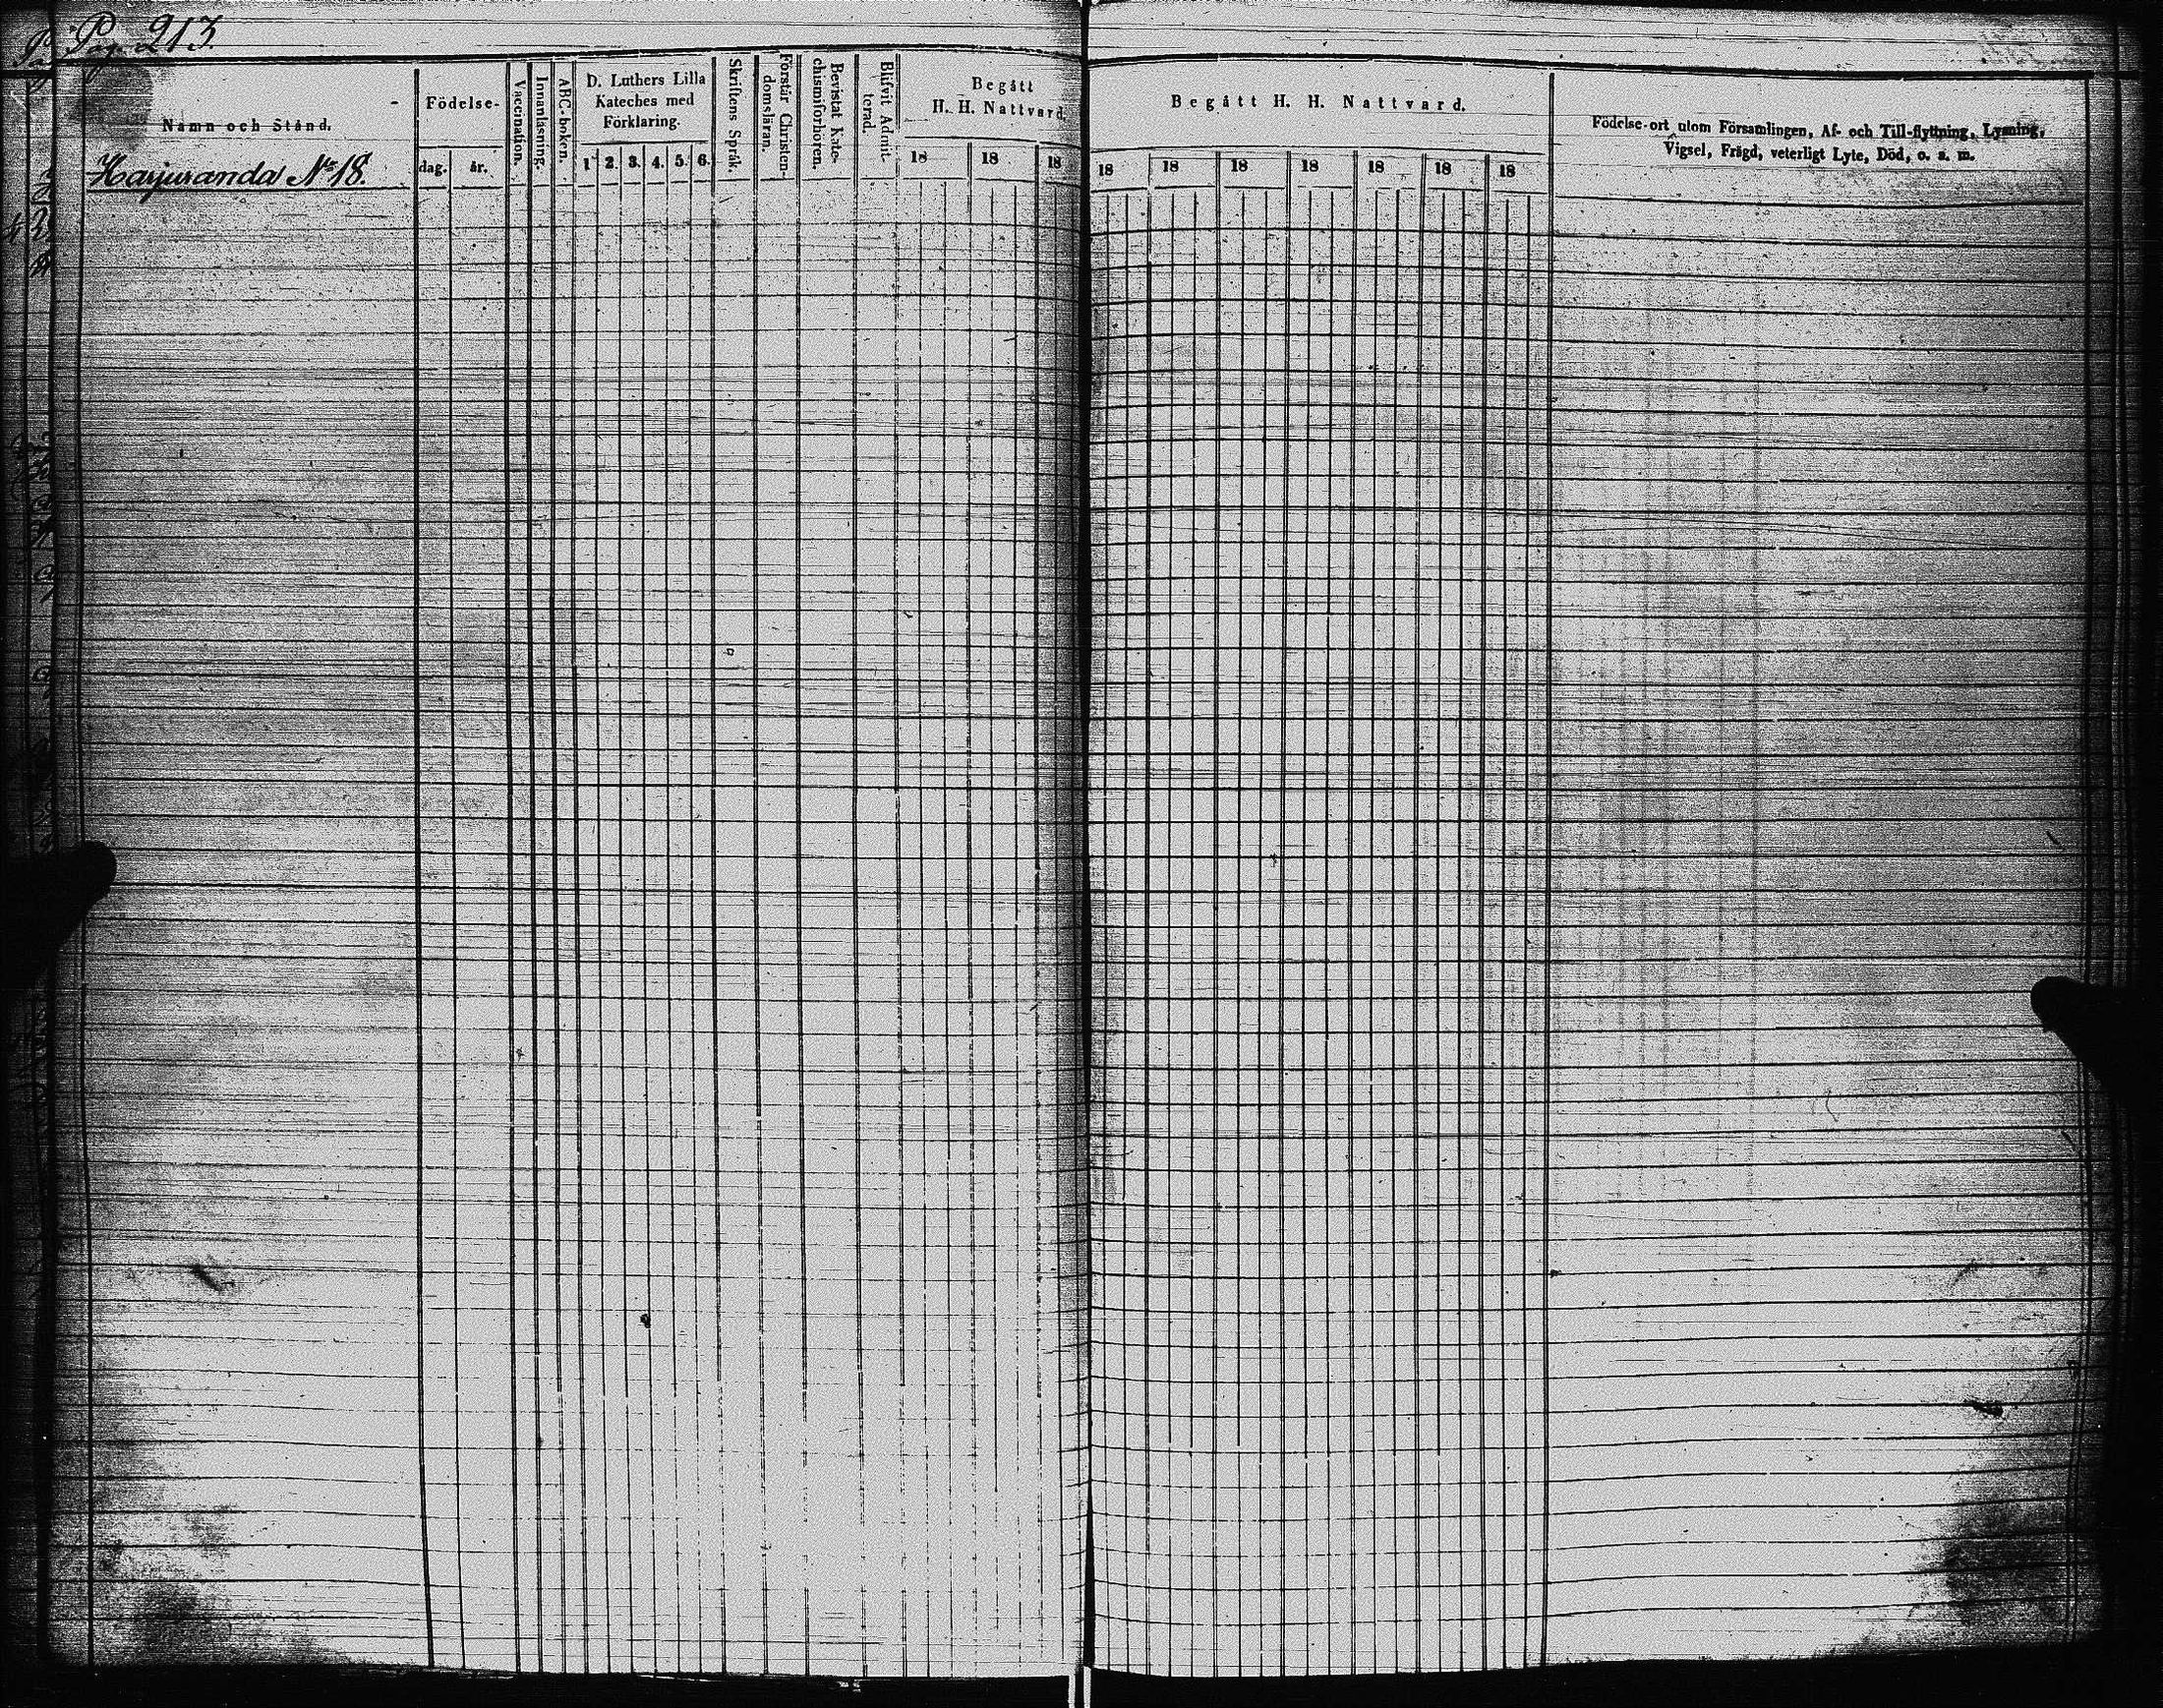 Pag. 213.
Namn och Stånd.
Harjuranda No 18.
Födelse-
dag. år.
Vaccination.
Innanläsning.
ABC-boken.
D. Luthers Lilla
Kateches med
Förklaring.
1 2. 3. 4. 5. 6.
Skriftens Språk.
Förstår Christen-
domsläran.
Bevistat Kate-
chismiförhören.
Blifvit Admit-
terad.
Begått
H. H. Nattvard.
18 18 18
Begått H. H. Nattvard.
18 18 18 18 18 18 18
Födelse-ort utom Församlingen, Af- och Till-flyttning, Lysning,
Vigsel, Frägd, veterligt Lyte, Död, o. s. m.